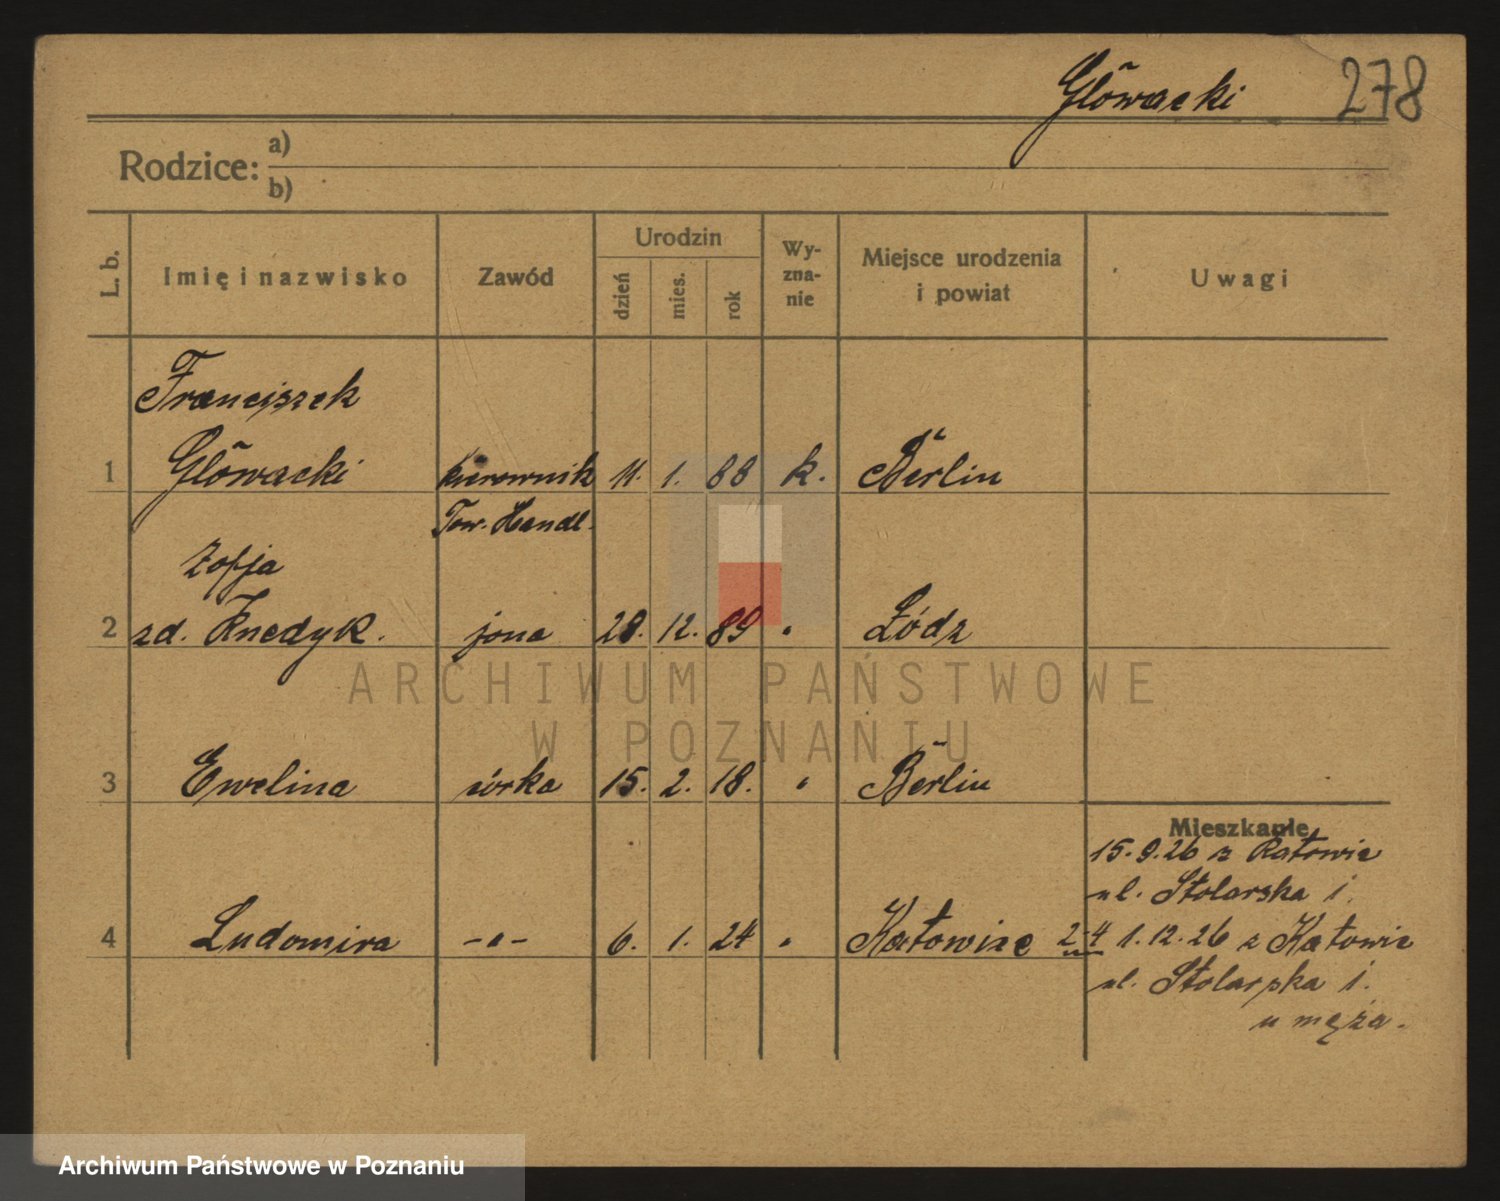 Głowacki 278
Rodzice: a)
b)
L. b. Imię i nazwisko Zawód Urodzin dzień mies. rok Wy-zna-nie Miejsce urodzenia i powiat Uwagi
Franciszek
1 Głowacki kierownik 11. 1. 88 k. Berlin
Tow. Handl.
Zofja
2 zd. Knedyk. żona 28. 12. 89 " Łódz
ARCHIWUM PAŃSTWOWE
W POZNANIU
3 Ewelina córka 15. 2. 18. " Berlin
Mieszkanie
15.9.26 z Katowic
ul. Stolarska 1.
4 Ludomira -"- 6. 1. 24 " Katowice 2-4 1.12.26 z Katowic
ul. Stolarska 1.
u męża.
Archiwum Państwowe w Poznaniu